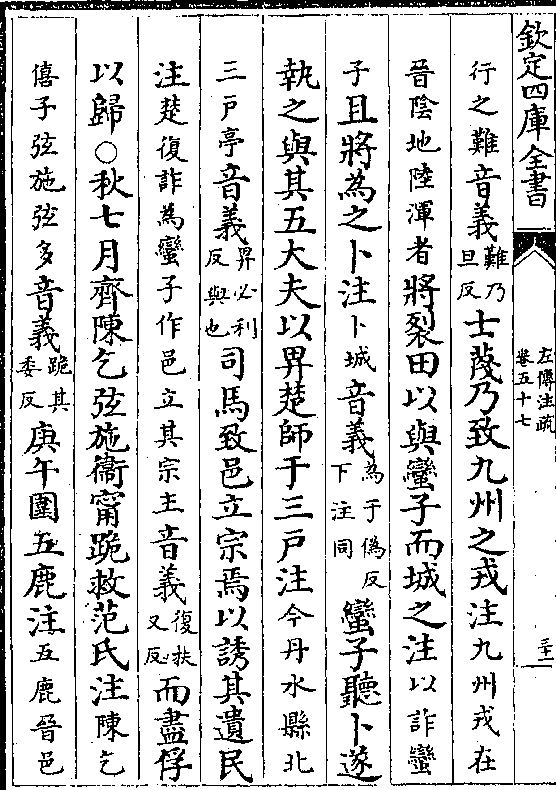 欽定四庫全書
左傳注疏
卷五十七
行之難音義難乃旦反士蔑乃致九州之戎注九州戎在
晉陰地陸渾者將裂田以與蠻子而城之注以詐蠻
子且將為之卜注卜城音義為于偽反下注同蠻子聽卜遂
執之與其五大夫以畀楚師于三戸注今丹水縣北
三戸亭音義畀必利反與也司馬致邑立宗焉以誘其遺民
注楚復詐為蠻子作邑立其宗主音義復扶又反而盡俘
以歸○秋七月齊陳乞弦施衞甯跪救范氏注陳乞
僖子弦施弦多音義跪其委反庚午圍五鹿注五鹿晉邑